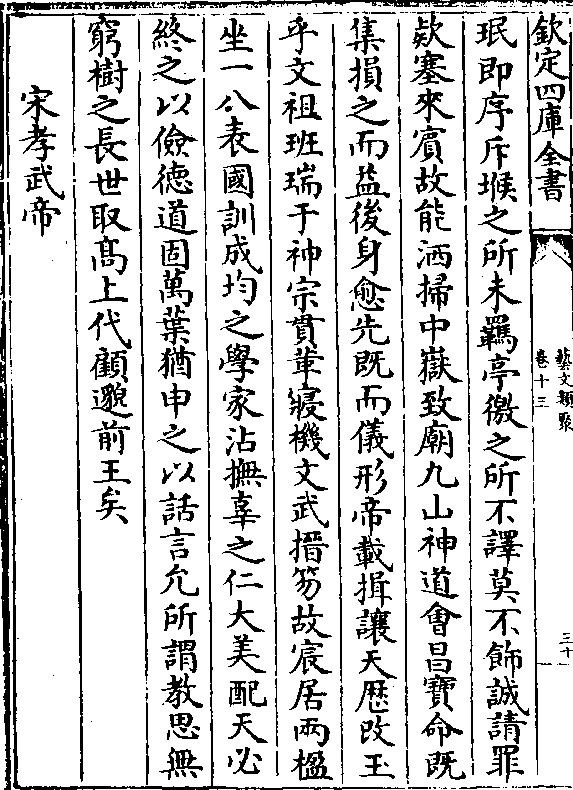 欽定四庫全書
藝文類聚
卷十三
三十
珉即序斥堠之所未羈亭徼之所不譯莫不飾誠請罪
欵塞來賓故能洒掃中嶽致廟九山神道會昌寶命既
集損之而益後身愈先既而儀形帝載揖讓天歷改玉
乎文祖班瑞于神宗貫革寢機文武搢笏故宸居兩楹
坐一八表國訓成均之學家沾撫辜之仁大美配天必
終之以儉德道固萬葉猶申之以話言允所謂教思無
窮樹之長世取髙上代顧邈前王矣
宋孝武帝